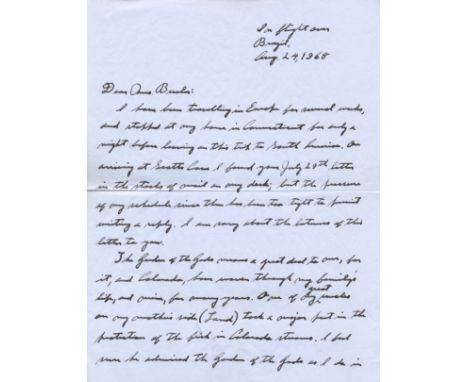 In flight over
Brazil,
Aug 24, 1968
Dear Mrs.
I have been travelling in Europe for several weeks,
and stopped at my home in Connecticut for only a
night before leaving on this trip to South America. On
arriving at Scotts Cove I found your July 29th letter
in the stacks of mail on my desk; but the pressure
of my schedule since then has been too tight to permit
writing a reply. I am sorry about the lateness of this
letter to you.
The Garden of the Gods means a great deal to me, for
it, and Colorado, have woven through my family's
life, and mine, for many years. One of my great uncles
on my mother's side (Land) took a major part in the
protection of the fish in Colorado streams. I feel
sure he admired the Garden of the Gods as I do in